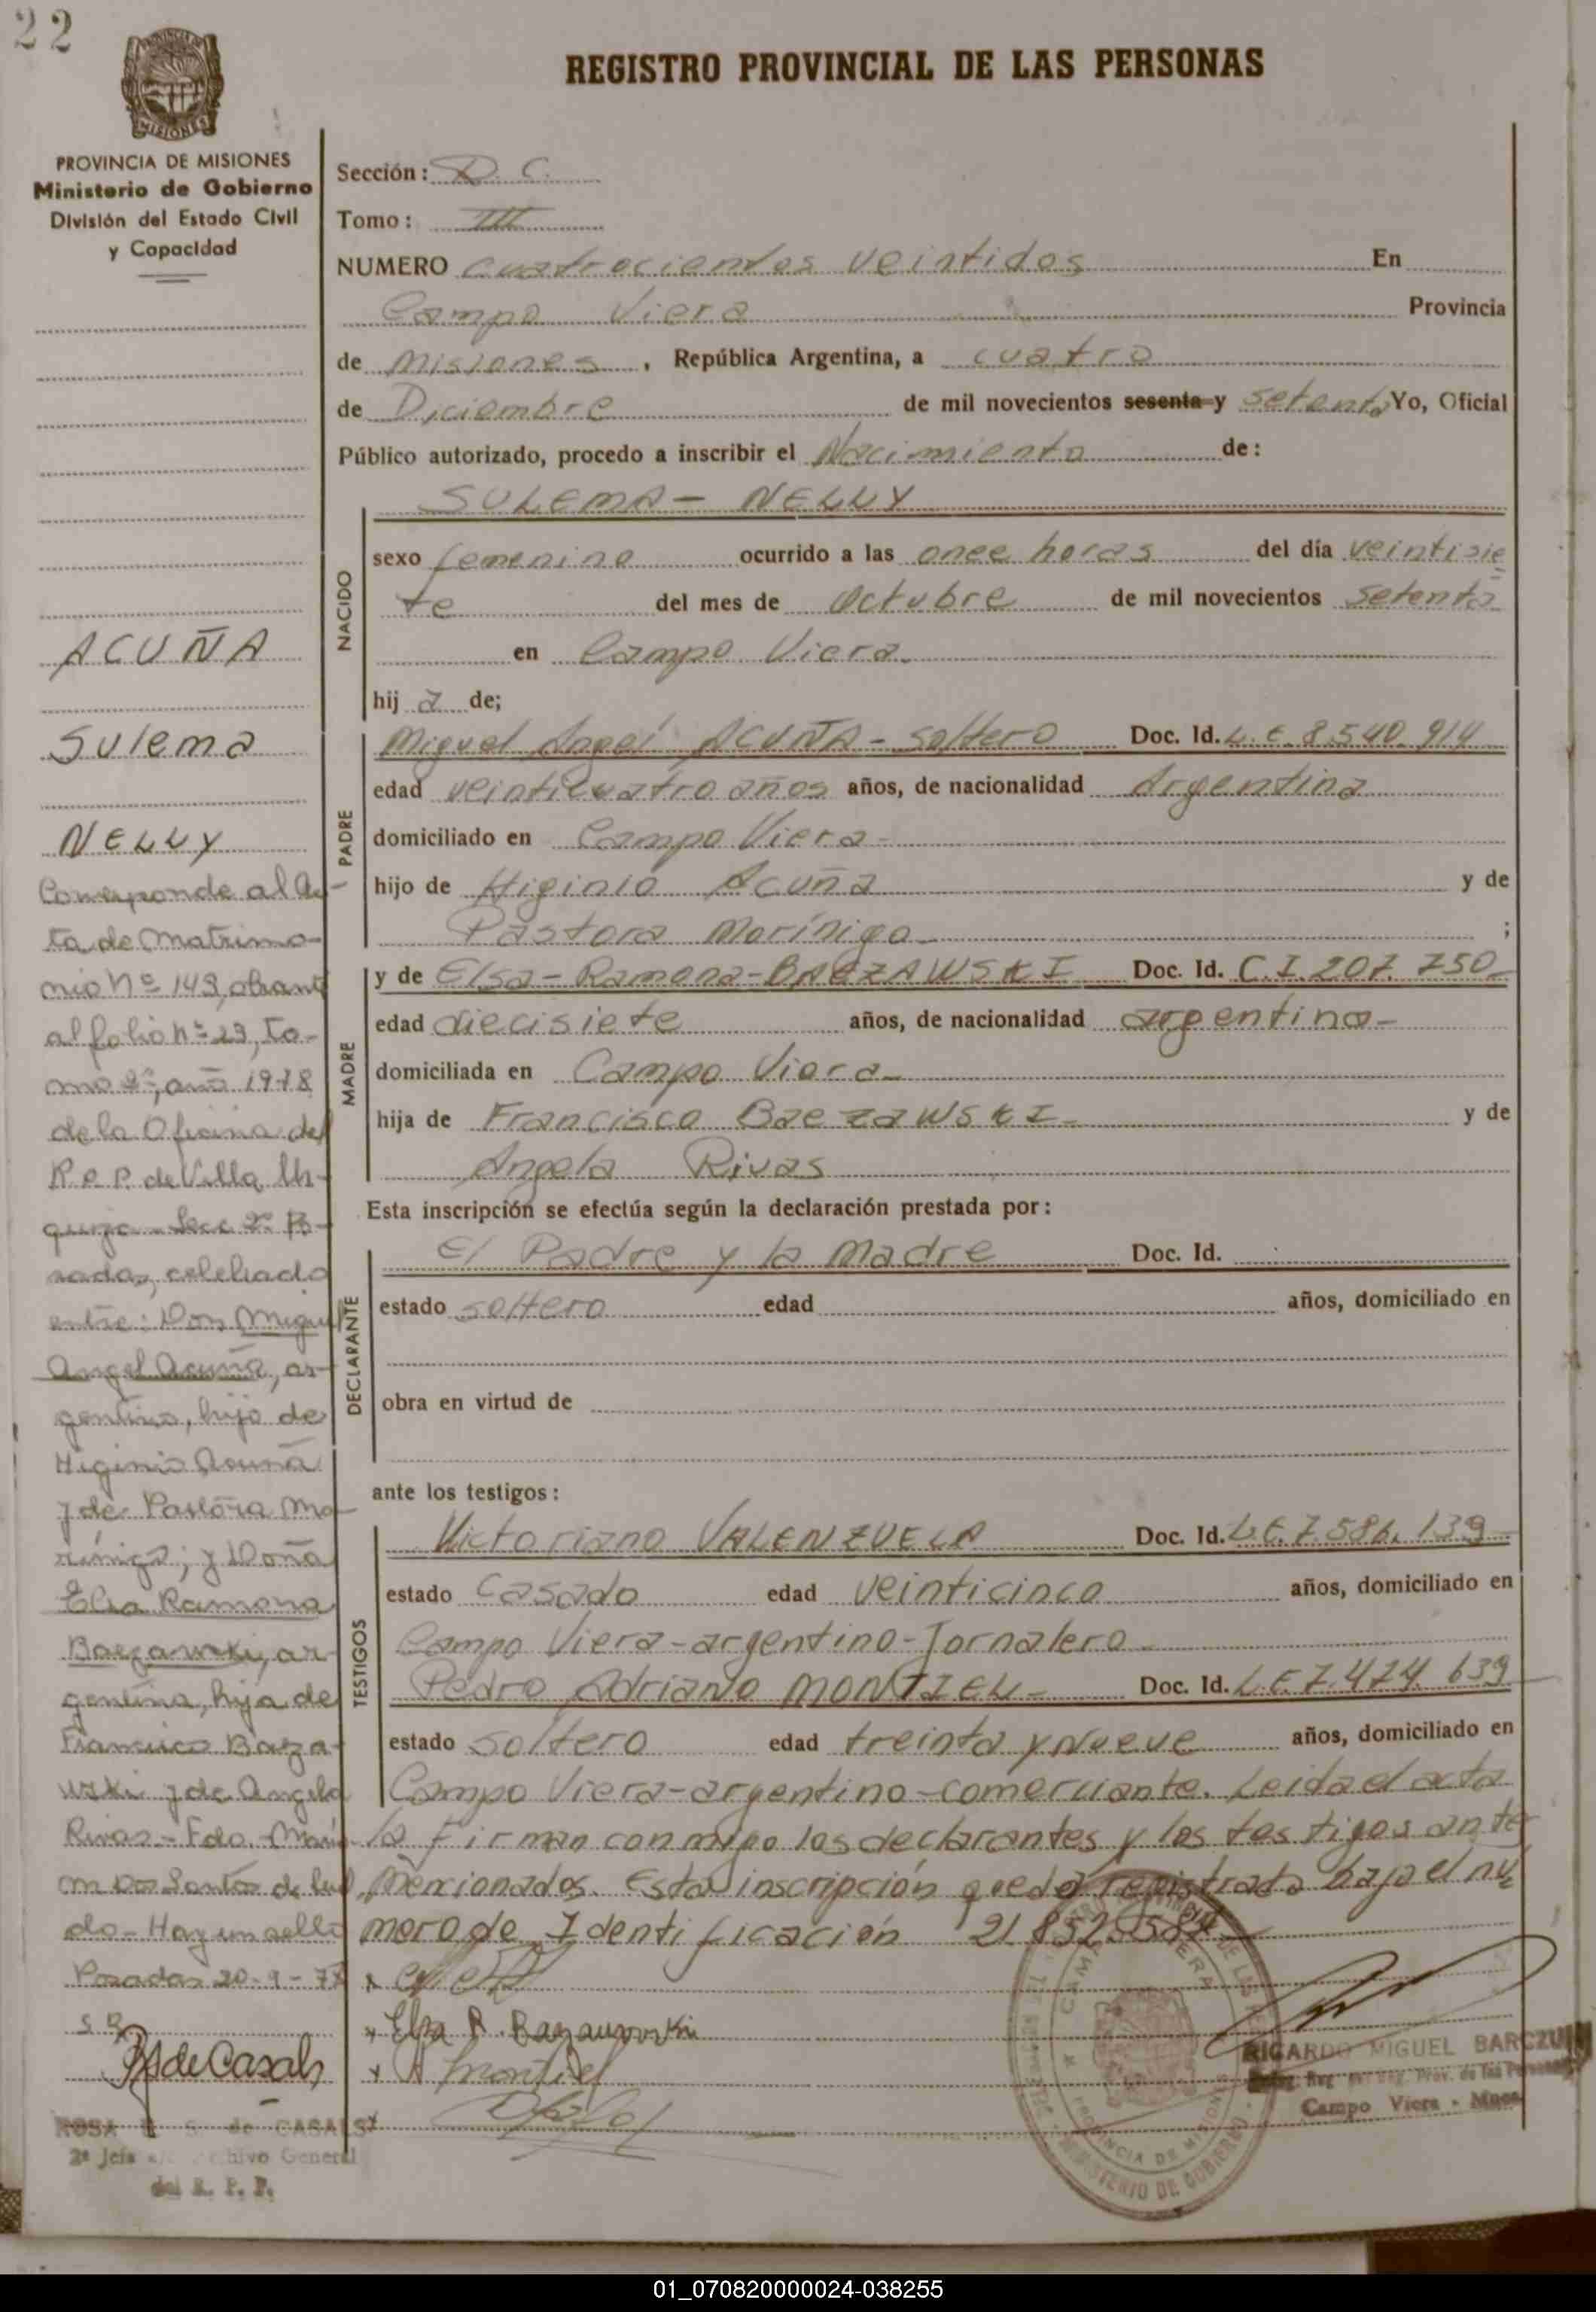 22
REGISTRO PROVINCIAL DE LAS PERSONAS
PROVINCIA DE MISIONES
Ministerio de Gobierno
División del Estado Civil
y Capacidad
Sección: D. C.
Tomo: III
NUMERO cuatrocientos veintidos En
Campo Viera Provincia
de Misiones, República Argentina, a cuatro
de Diciembre de mil novecientos sesenta y setenta Yo, Oficial
Público autorizado, procedo a inscribir el Nacimiento de:
SULEMA - NELLY
NACIDO
sexo femenino ocurrido a las once horas del día veintisie
te del mes de Octubre de mil novecientos setenta
en Campo Viera.
hij a de;
PADRE
Miguel Angel ACUÑA - soltero Doc. Id. L. E. 8.540.914
edad veinticuatro años años, de nacionalidad Argentina
domiciliado en Campo Viera-
hijo de Higinio Acuña y de
Pastora Morínigo ;
MADRE
y de Elsa - Ramona - BAEZAWSKI Doc. Id. C. I. 207.750
edad diecisiete años, de nacionalidad argentina-
domiciliada en Campo Viera-
hija de Francisco BaezaWSKI- y de
Angela Rivas
Esta inscripción se efectúa según la declaración prestada por:
DECLARANTE
El Padre y la Madre Doc. Id.
estado soltero edad años, domiciliado en
obra en virtud de
ante los testigos:
TESTIGOS
Victoriano VALENZUELA Doc. Id. L.E. 7.586.139
estado Casado edad veinticinco años, domiciliado en
Campo Viera - argentino - Jornalero-
Pedro Adriano MONTIEL- Doc. Id. L.E. 7.474.639
estado soltero edad treinta y nueve años, domiciliado en
Campo Viera - argentino - comerciante. Leida el acta
la firman conmigo los declarantes y los testigos ante
mencionados. Esta inscripción queda registrada bajo el nu
mero de Identificación 21.852.584
Elsa R. Bazauwski
A Montiel
RICARDO MIGUEL BARCZUK
Campo Viera - Mnes.
CAMPO VIERA
PROVINCIA DE MISIONES
MINISTERIO DE GOBIERNO
ACUÑA
Sulema
NELLY
Corresponde al Ac-
ta de Matrimo-
nio Nº 149, obrante
al folio nº 29, to-
mo 2º, año 1978
de la Oficina del
R.P.P. de Villa Ur-
quiza - Secc 2º Po-
sadas, celebrado
entre: Don Miguel
Angel Acuña, ar-
gentino, hijo de
Higinio Acuña
y de Pastora Mo-
rínigo; y Doña
Elsa Ramona
Baezawski, ar-
gentina, hija de
Francisco Baeza-
wski y de Angela
Rivas - Fdo. - María
M Dos Santos de
do - Hay un sello
Posadas 20-9-78
ROSA de CASALS
2ª Jefa Archivo General
del R. P. P.
01_070820000024-038255